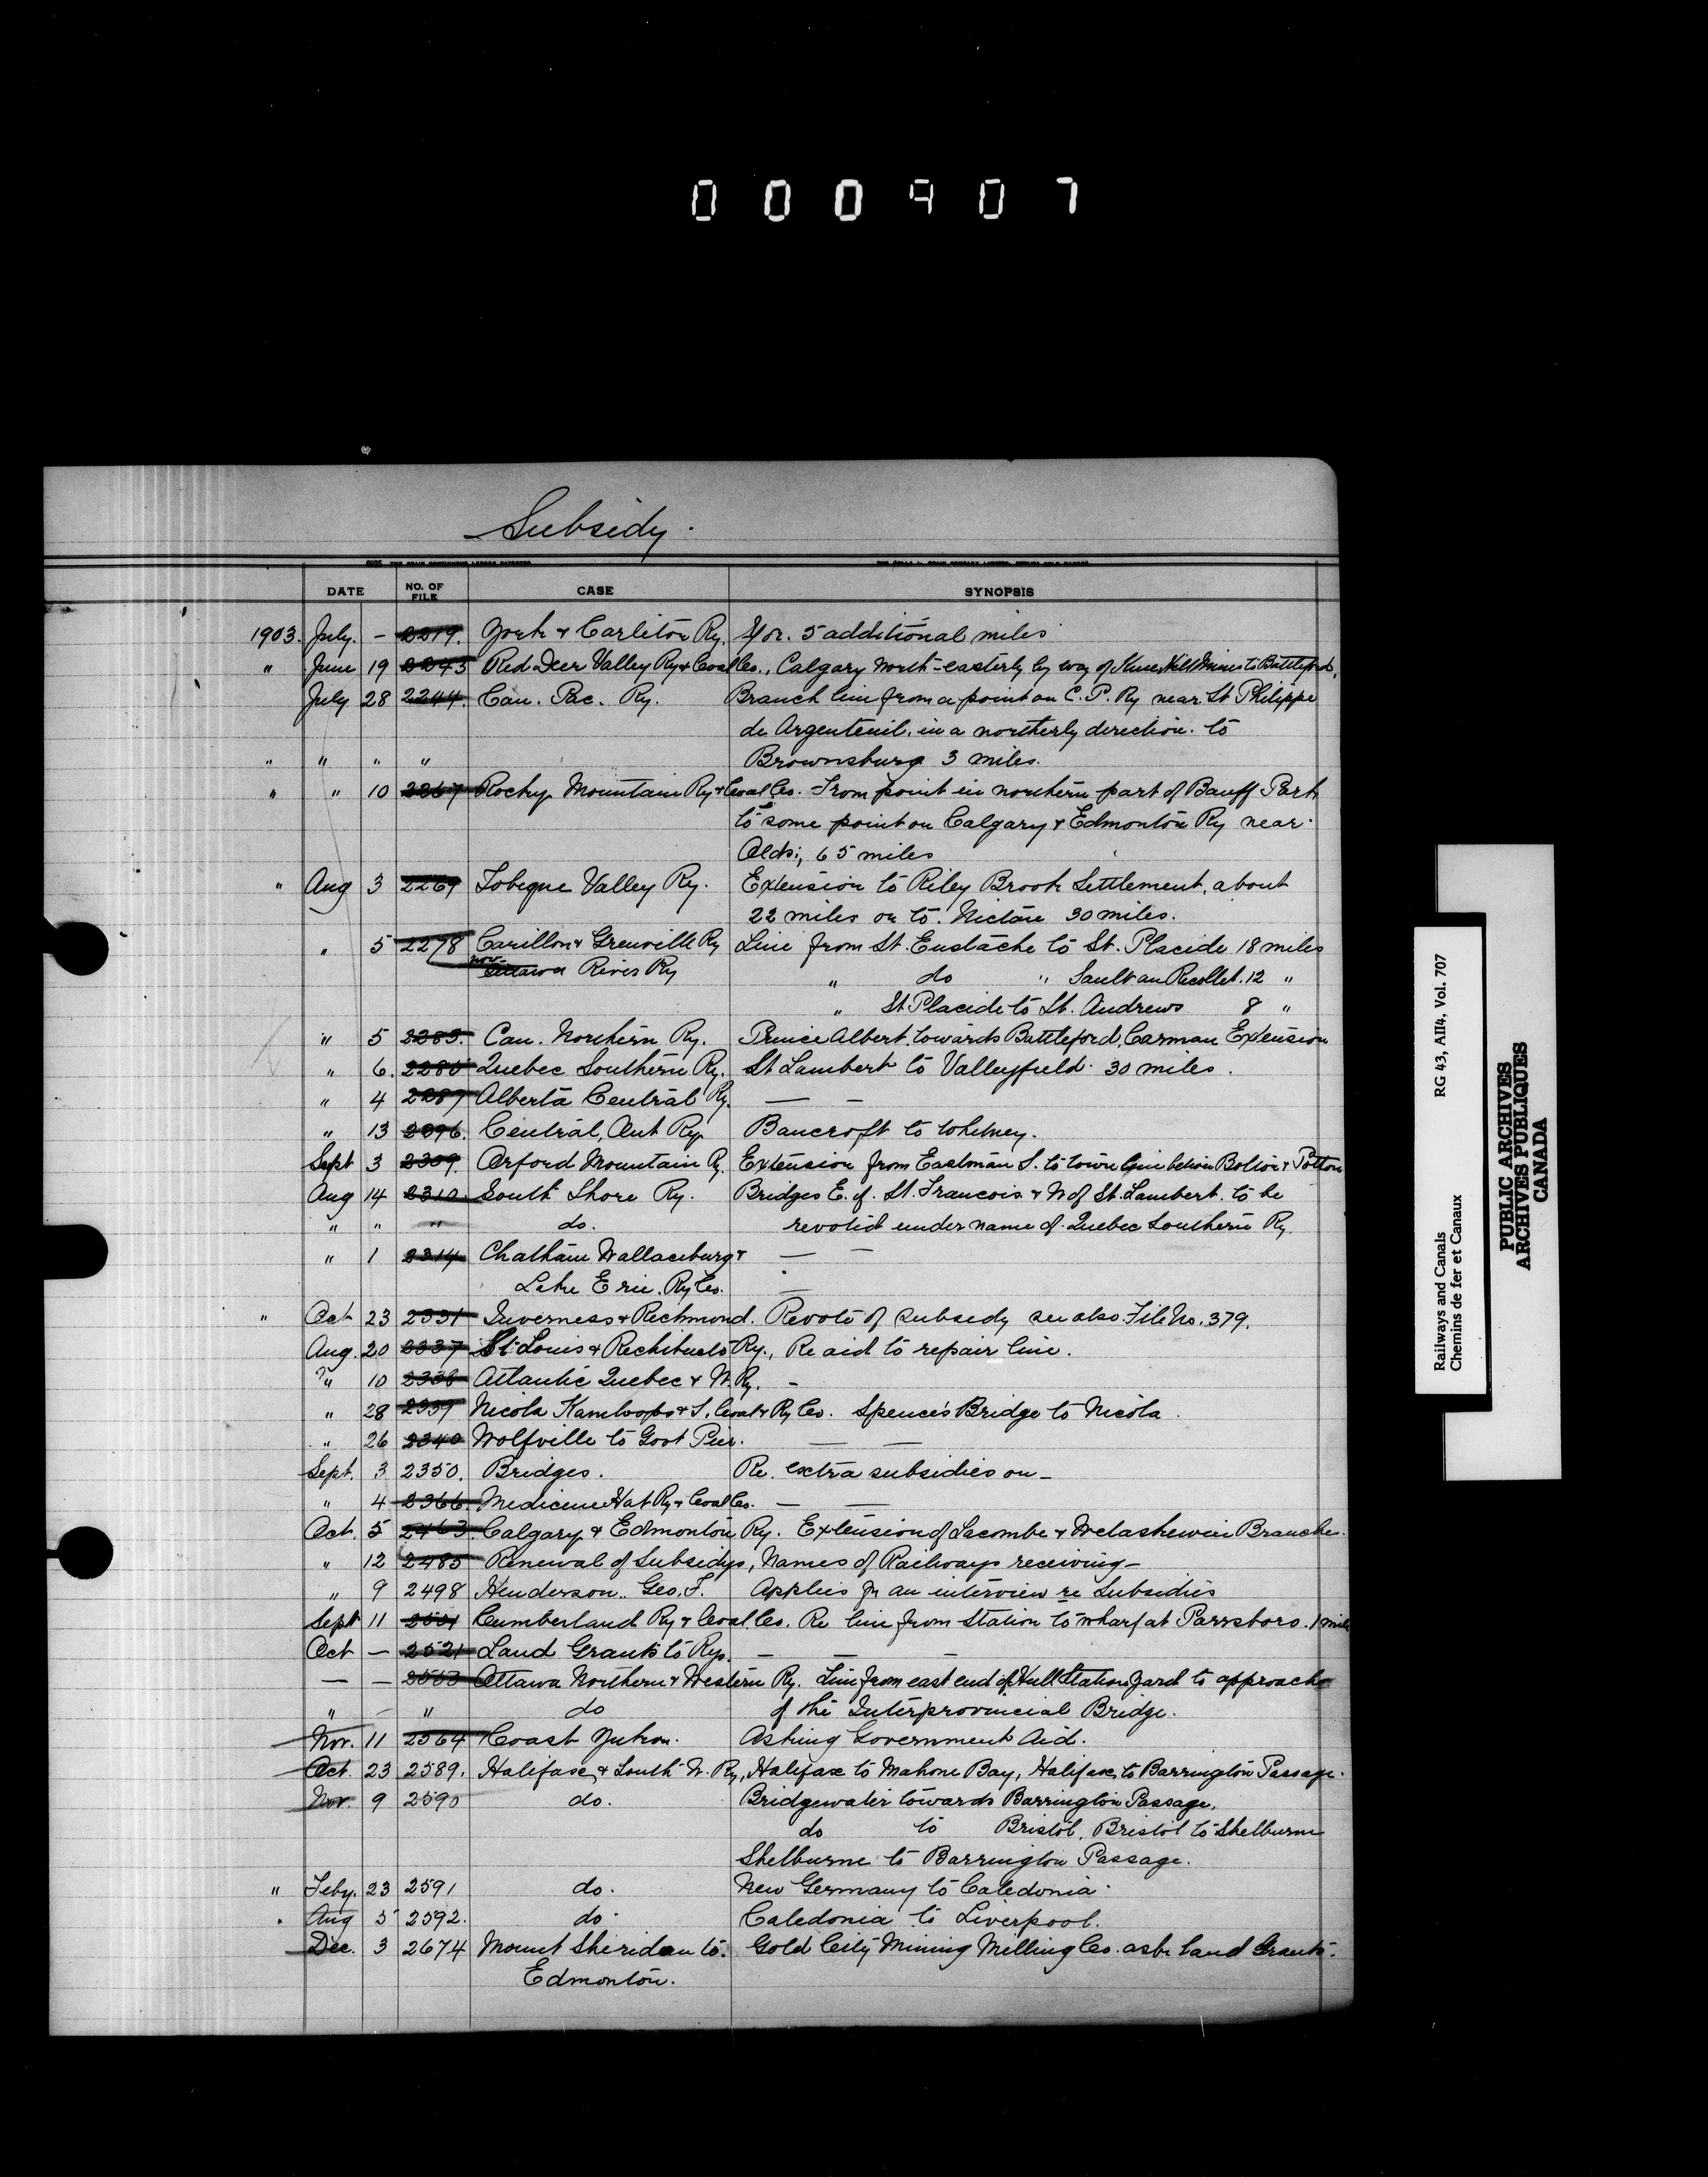 000907
Subsidy.
DATE NO. OF FILE CASE SYNOPSIS
1903. July. — 2219. York & Carleton Ry. For. 5 additional miles
" June 19 2243 Red Deer Valley Ry & Coal Co., Calgary North-easterly by way of Knee Hill Mines to Battleford.
July 28 2244. Can. Pac. Ry. Branch line from a point on C. P. Ry near St Philippe
de Argenteuil. in a northerly direction. to
" " " " Brownsburg 3 miles.
" " 10 2267 Rocky Mountain Ry & Coal Co. From point in northern part of Banff Park
to some point on Calgary & Edmonton Ry near
Olds, 65 miles
" Aug 3 2269 Tobique Valley Ry. Extension to Riley Brook Settlement, about
22 miles on to. Nictau 30 miles.
" 5 2278 Carillon & Grenville Ry Line from St. Eustache to St. Placide 18 miles
now Ottawa River Ry " do " Sault au Recollet. 12 "
" St. Placide to St. Andrews 8 "
" 5 2285. Can. Northern Ry. Prince Albert. towards Battleford, Carman Extension
" 6. 2286 Quebec Southern Ry. St Lambert to Valleyfield. 30 miles.
" 4 2287 Alberta Central Ry. — —
" 13 2296. Central, Ont Ry. Bancroft to Whitney.
Sept 3 2309. Orford Mountain Ry. Extension from Eastman S. to town line between Bolton & Potton
Aug 14 2310. South Shore Ry. Bridges E. of. St. Francois & N of St. Lambert. to be
" " " do. revoted under name of. Quebec Southern Ry.
" 1 2314 Chatham Wallaceburg & — —
Lake Erie. Ry Co. —
" Oct 23 2331 Inverness & Richmond. Revote of subsidy see also. File No. 379.
Aug. 20 2337 St. Louis & Richibucto Ry., Re aid to repair line.
" 10 2338 Atlantic Quebec & W. Ry. —
" 28 2339 Nicola Kamloops & S. Coal & Ry Co. Spence's Bridge to Nicola.
" 26 2340 Wolfville to Govt Pier. — —
Sept. 3 2350. Bridges. Re. extra subsidies on —
" 4 2366. Medicine Hat Ry & Coal Co. — —
Oct. 5 2463. Calgary & Edmonton Ry. Extension of Lacombe & Wetaskewin Branches.
" 12 2485 Renewal of Subsidys, Names of Railways receiving —
" 9 2498 Henderson.. Geo. F. Applies for an interview re Subsidies
Sept 11 2501 Cumberland Ry & Coal. Co. Re line from Station to wharf at Parrsboro. 1 mile
Oct — 2521 Land Grants to Rys. — — —
— — 2553 Ottawa Northern & Western Ry. Line from east end of Hull Station Yard to approach
" — " do of the Interprovincial Bridge.
Nov. 11 2564 Coast Yukon. Asking Government Aid.
Oct. 23 2589. Halifax & South W. Ry, Halifax to Mahone Bay, Halifax to Barrington Passage.
Nov. 9 2590 do. Bridgewater towards Barrington Passage,
do to Bristol, Bristol to Shelburne
Shelburne to Barrington Passage.
" Feby. 23 2591 do. New Germany to Caledonia.
" Aug 5 2592. do. Caledonia to Liverpool.
Dec. 3 2674 Mount Sheridan to. Gold City Mining Milling Co. ask land Grants.
Edmonton.
Railways and Canals RG 43, AII4, Vol. 707
Chemins de fer et Canaux
PUBLIC ARCHIVES
ARCHIVES PUBLIQUES
CANADA